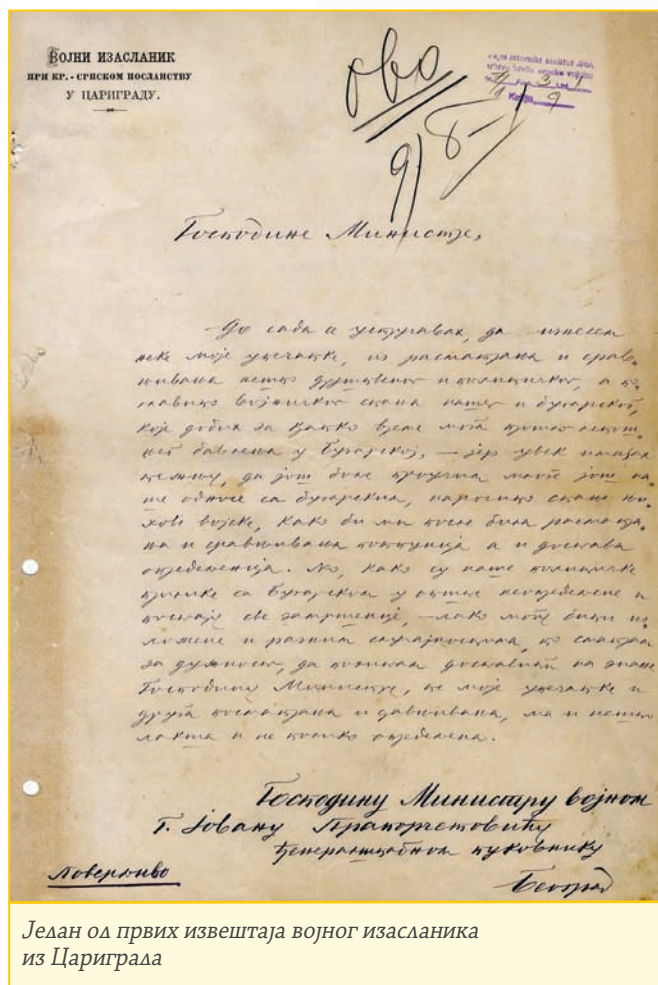 ВОЈНИ ИЗАСЛАНИК
ПРИ КР.-СРПСКОМ ПОСЛАНСТВУ
У ЦАРИГРАДУ.
ово
9/8
Господине Министре,
До сада се устручавах, да изнесем
неке моје утиске, из расматрања и срав-
њивања нешто друштвеног и политичког, а по
главито војничког стања нашег и бугарског,
које добих за кратко време мога
бављења у Бугарској, — јер увек
да још боље проучим још на-
ше односе са бугарском, нарочито стање њи-
хове војске, како би ми после била расматра-
ња и сравњивања потпунија а и
опредељенија. Но, како су наше политичке
прилике са Бугарском у опште неопредељене и
постају све — лако могу бити из-
ложене и разним случајностима, то сматрам
за дужност, да доставити на знање
Господину Министре, те моје и
друга посматрања и, ма и нешто
и не толико опредељена.
Господину Министру војном
Г. Јовану Прапорчетовићу
ђенералштабном пуковнику
Београд
Поверљиво
Један од првих извештаја војног изасланика
из Цариграда